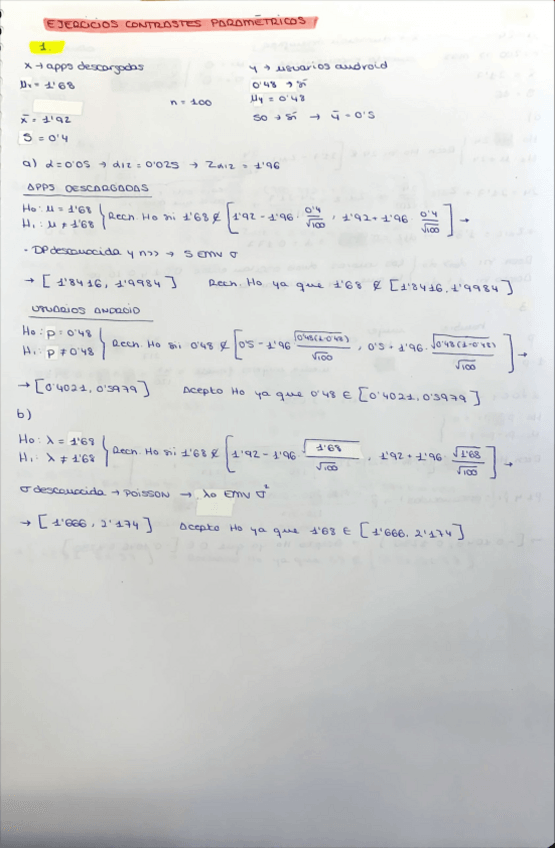 EJERCICIOS CONTRASTES PARAMÉTRICOS
1.
X → apps descargadas
Y → usuarios android
μx = 1'68
0'48 → sí
n = 100
μy = 0'48
x̄ = 1'92
50 → sí → ȳ = 0'5
S = 0'4
a) α = 0'05 → α/2 = 0'025 → Zα/2 = 1'96
APPS DESCARGADAS
H₀: μ = 1'68
H₁: μ ≠ 1'68 } Rech. H₀ si 1'68 ∉ [1'92 - 1'96 · 0'4/√100, 1'92 + 1'96 · 0'4/√100] →
· DP desconocida y n>> → S EMV σ
→ [1'8416, 1'9984] Rech. H₀ ya que 1'68 ∉ [1'8416, 1'9984]
USUARIOS ANDROID
H₀: p = 0'48
H₁: p ≠ 0'48 } Rech. H₀ si 0'48 ∉ [0'5 - 1'96 √0'48(1-0'48)/√100, 0'5 + 1'96 · √0'48(1-0'48)/√100] →
→ [0'4021, 0'5979] Acepto H₀ ya que 0'48 ∈ [0'4021, 0'5979]
b)
H₀: λ = 1'68
H₁: λ ≠ 1'68 } Rech. H₀ si 1'68 ∉ [1'92 - 1'96 · √1'68/√100, 1'92 + 1'96 · √1'68/√100] →
σ desconocida → POISSON → λ₀ EMV σ²
→ [1'666, 2'174] Acepto H₀ ya que 1'68 ∈ [1'666, 2'174]